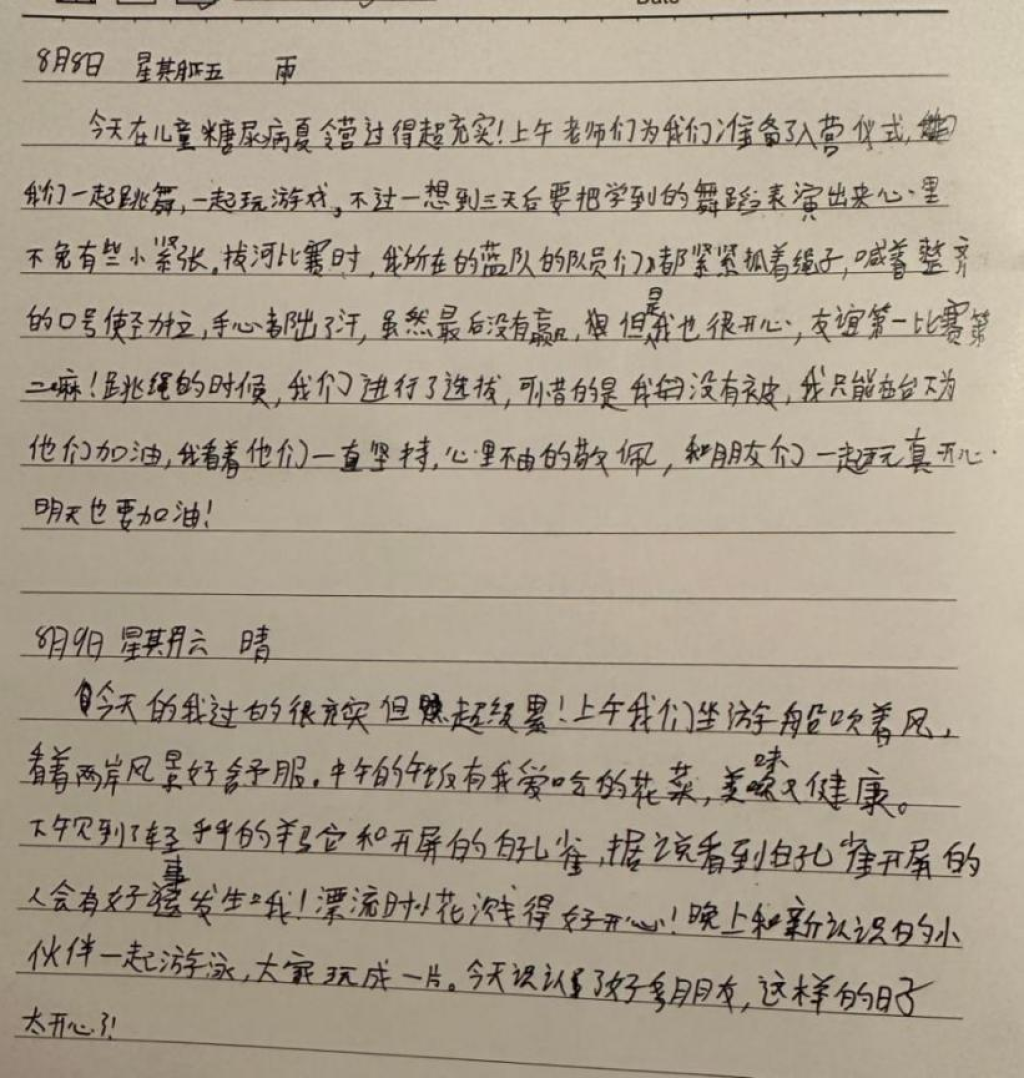 8月8日 星期五 雨
今天在儿童糖尿病夏令营过得超充实!上午老师们为我们准备了入营仪式,
我们一起跳舞,一起玩游戏。不过一想到三天后要把学到的舞蹈表演出来心里
不免有些小紧张。拔河比赛时,我所在的蓝队的队员们都紧紧抓着绳子,喊着整齐
的口号使劲拉,手心都出了汗,虽然最后没有赢,但是我也很开心,友谊第一比赛第
二嘛!跳绳的时候,我们进行了选拔,可惜的是我没有被,我只能在台下为
他们加油,我看着他们一直坚持,心里不由的敬佩,和朋友们一起玩真开心.
明天也要加油!
8月9日 星期六 晴
今天的我过的很充实但超级累!上午我们坐游船吹着风,
看着两岸风景好舒服。中午的午饭有我爱吃的花菜,美味又健康。
下午见到了的羊驼和开屏的白孔雀,据说看到白孔雀开屏的
人会有好事发生哦!漂流时水花溅得好开心!晚上和新认识的小
伙伴一起游泳,大家玩成一片。今天认识了好多朋友,这样的日子
太开心了!